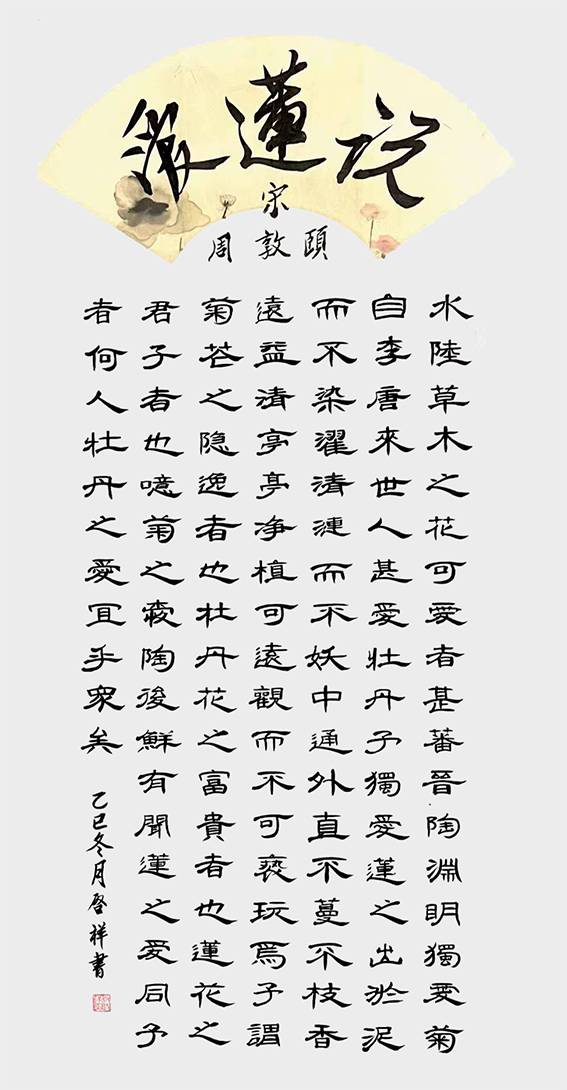 愛蓮説
宋
周敦頤
水陸草木之花可愛者甚蕃晉陶淵明獨愛菊
自李唐來世人甚愛牡丹予獨愛蓮之出於泥
而不染濯清漣而不妖中通外直不蔓不枝香
遠益清亭亭净植可遠觀而不可褻玩焉予謂
菊花之隐逸者也牡丹花之富貴者也蓮花之
君子者也噫菊之愛陶後鮮有聞蓮之爱同予
者何人牡丹之愛宜乎衆矣
乙巳冬月啓祥書